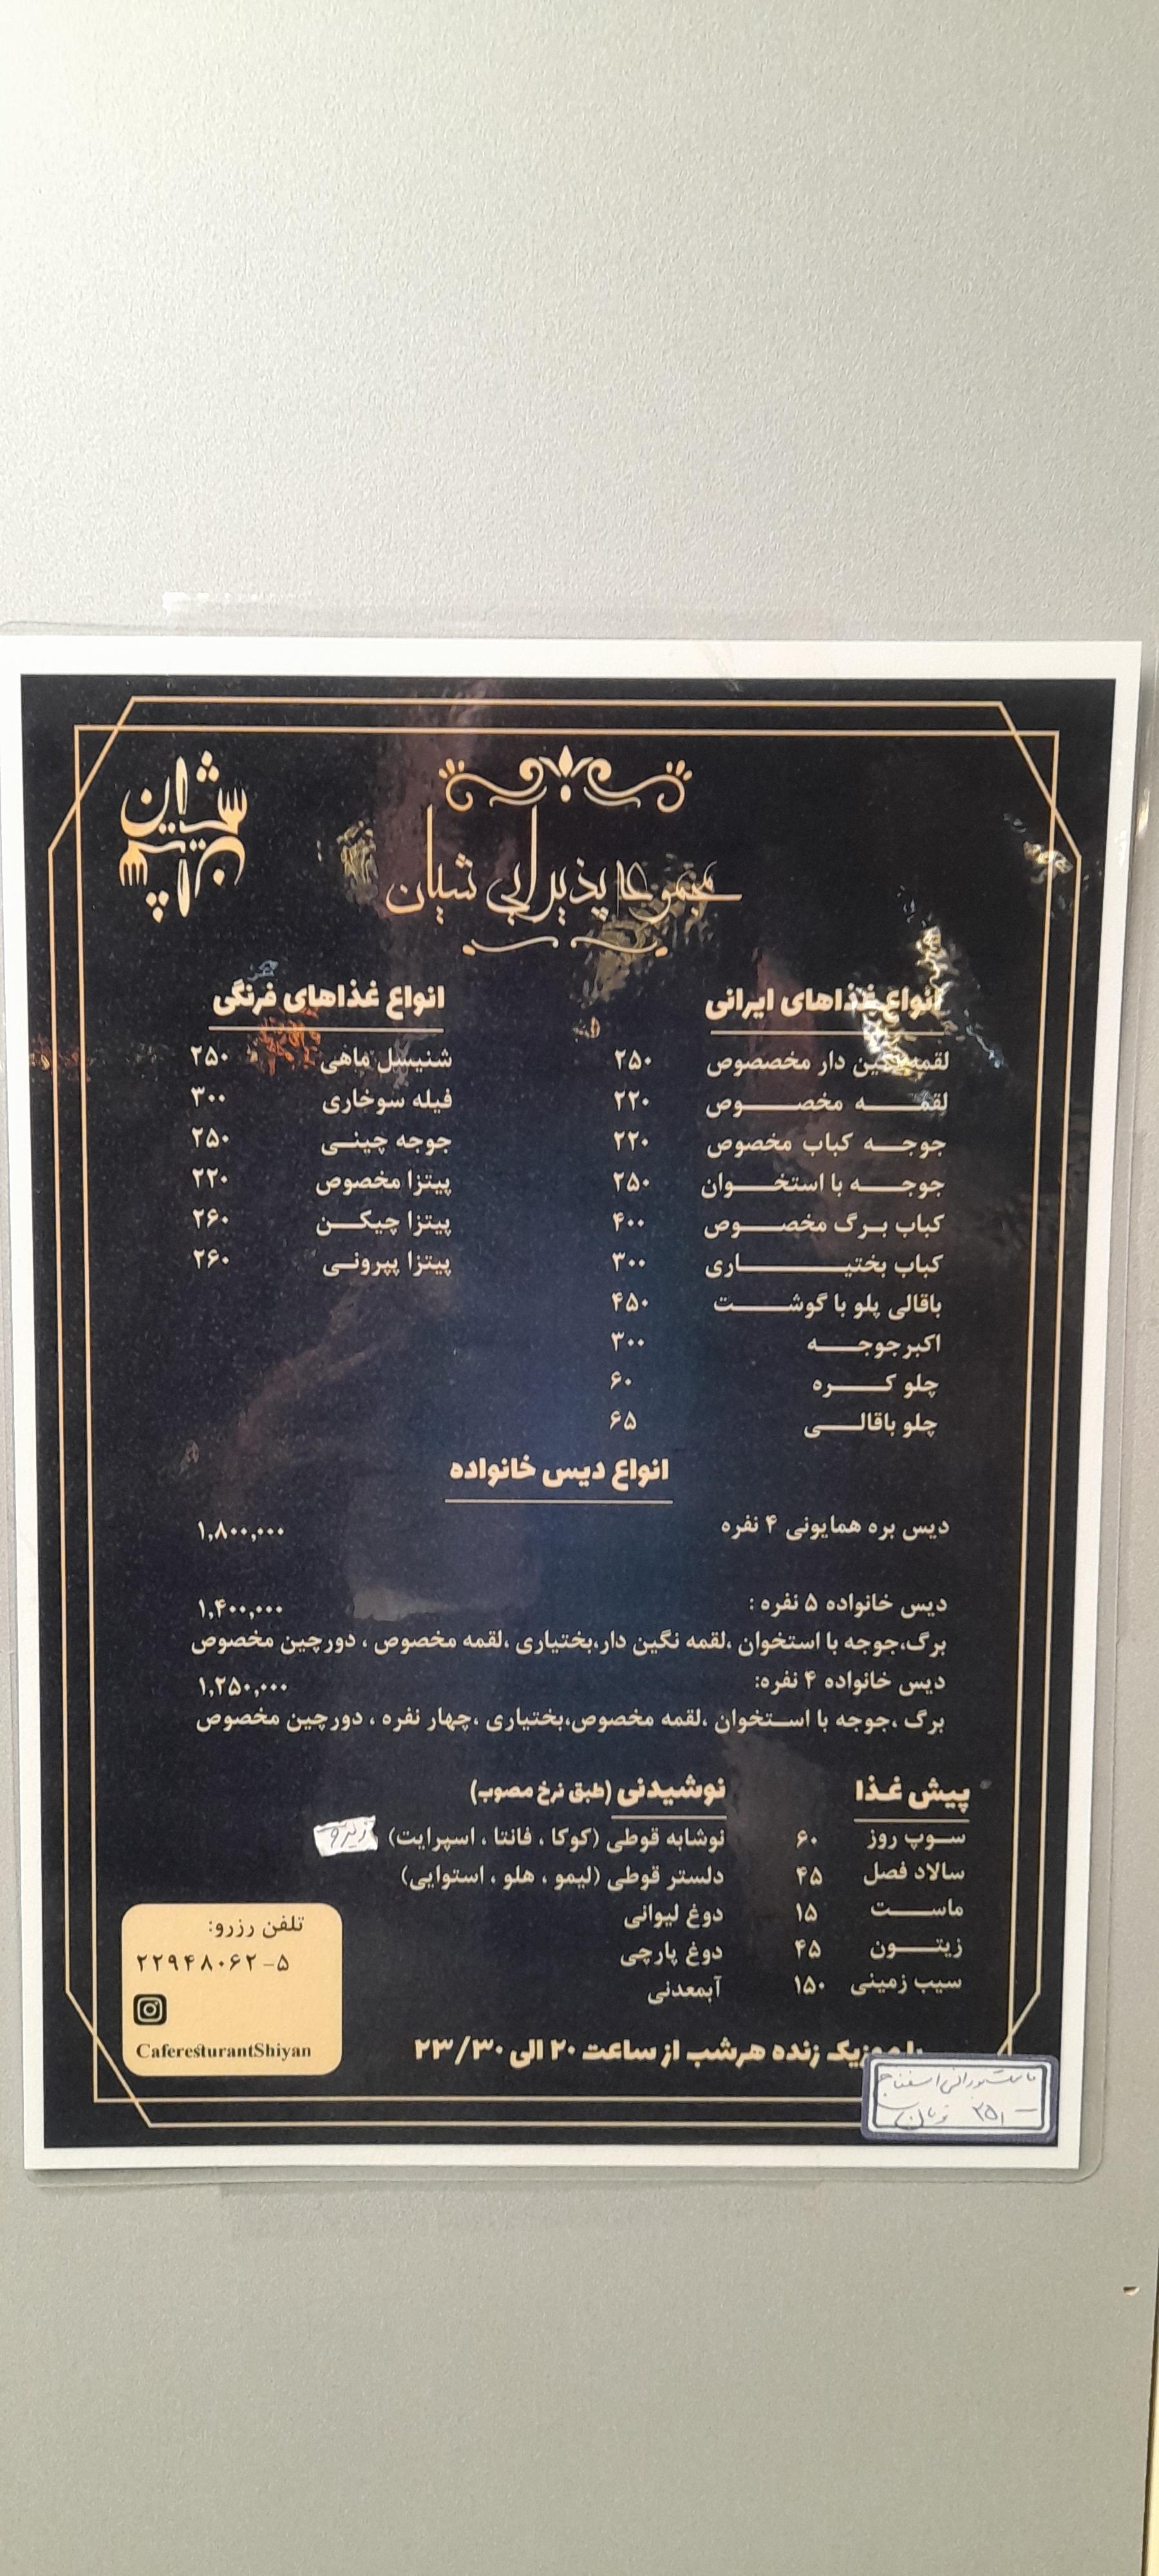 مجموعه پذیرایی شیان
انواع غذاهای ایرانی
لقمه نگین دار مخصصوص ۲۵۰
لقمه مخصوص ۲۲۰
جوجه کباب مخصوص ۲۲۰
جوجه با استخوان ۲۵۰
کباب برگ مخصوص ۴۰۰
کباب بختیاری ۳۰۰
باقالی پلو با گوشت ۴۵۰
اکبرجوجه ۳۰۰
چلو کره ۶۰
چلو باقالی ۶۵
انواع غذاهای فرنگی
شنیسل ماهی ۲۵۰
فیله سوخاری ۳۰۰
جوجه چینی ۲۵۰
پیتزا مخصوص ۲۲۰
پیتزا چیکن ۲۶۰
پیتزا پپرونی ۲۶۰
انواع دیس خانواده
دیس بره همایونی ۴ نفره ۱,۸۰۰,۰۰۰
دیس خانواده ۵ نفره : ۱,۴۰۰,۰۰۰
برگ،جوجه با استخوان ،لقمه نگین دار،بختیاری ،لقمه مخصوص ، دورچین مخصوص
دیس خانواده ۴ نفره: ۱,۲۵۰,۰۰۰
برگ ،جوجه با استخوان ،لقمه مخصوص،بختیاری ،چهار نفره ، دورچین مخصوص
پیش غذا
سوپ روز ۶۰
سالاد فصل ۴۵
ماست ۱۵
زیتون ۴۵
سیب زمینی ۱۵۰
نوشیدنی (طبق نرخ مصوب)
نوشابه قوطی (کوکا ، فانتا ، اسپرایت) زیرو
دلستر قوطی (لیمو ، هلو ، استوایی)
دوغ لیوانی
دوغ پارچی
آبمعدنی
با موزیک زنده هرشب از ساعت ۲۰ الی ۲۳/۳۰
تلفن رزرو:
۲۲۹۴۸۰۶۲-۵
CaferesturantShiyan
اسفناج
تومان